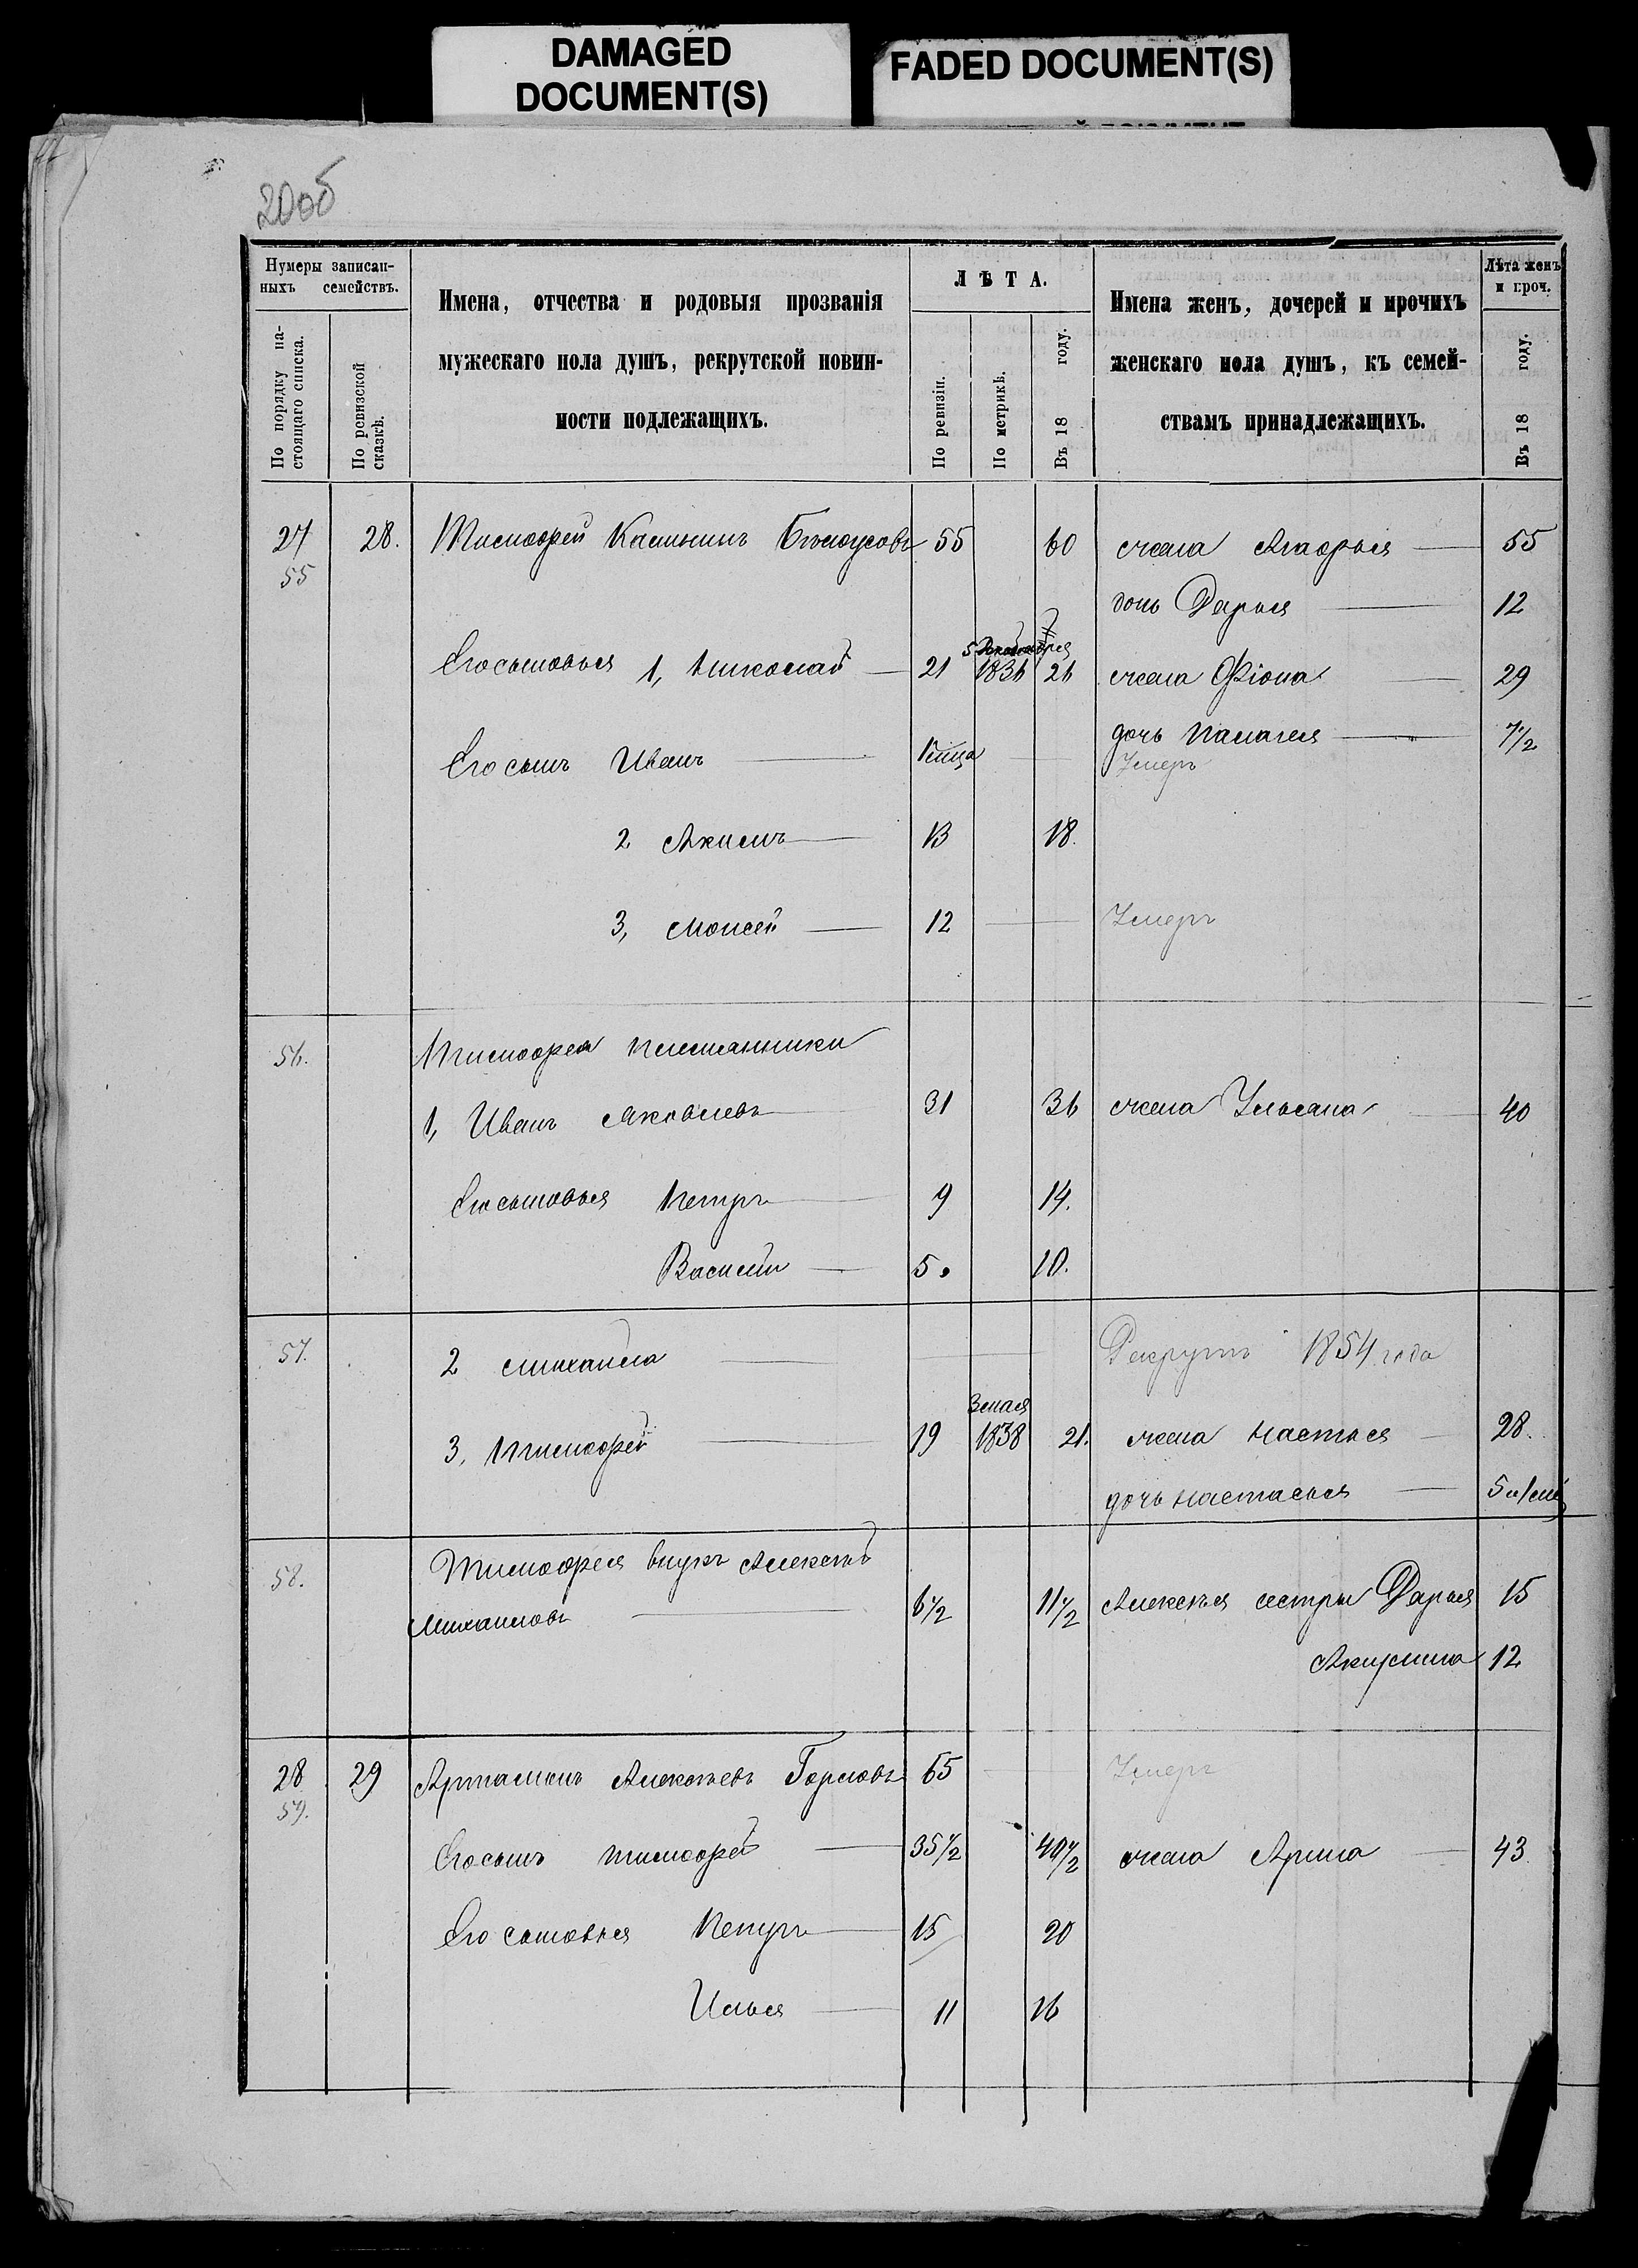 DAMAGED
DOCUMENT(S)
FADED DOCUMENT(S)
20об
Нумеры записан-
ныхъ семействъ.
По порядку на-
стоящаго списка.
По ревизской
сказкѣ.
Имена, отчества и родовыя прозванія
мужескаго пола душъ, рекрутской повин-
ности подлежащихъ.
ЛѢТА.
По ревизіи.
По метрикѣ.
Въ 18 году.
Имена женъ, дочерей и прочихъ
женскаго пола душъ, къ семей-
ствамъ принадлежащихъ.
Лѣта женъ
и проч.
Въ 18 году.
27 28. Тимофей Калининъ Бѣлоусовъ 55 60 жена Агафья 55
55
дочь Дарья 12
5 Декабря
Его сыновья 1, Николай 21 1836 26 жена Фіона 29
дочь Палагея 7 1/2
Его сынъ Иванъ Умеръ
2 Акимъ 13 18.
3, Моисей 12 Умеръ
56. Тимофея племянники
1, Иванъ Яковлевъ 31 36 жена Ульяна 40
Его сыновья Петръ 9 14.
Василій 5. 10.
57. 2 Михаила Рекрутъ 1854 года
3 мая
3, Тимофей 19 1838 21. жена Настья 28.
дочь Настасья
58. Тимофея внукъ Алексѣй
Михайловъ 6 1/2 11 1/2 Алексѣя сестры Дарья 15
Акулина 12
28 29 Артамонъ Алексѣевъ Горловъ 65 Умеръ
59.
Его сынъ Тимофей 35 1/2 40 1/2 жена Арина 43
Его сыновья Петръ 15 20
Илья 11 16